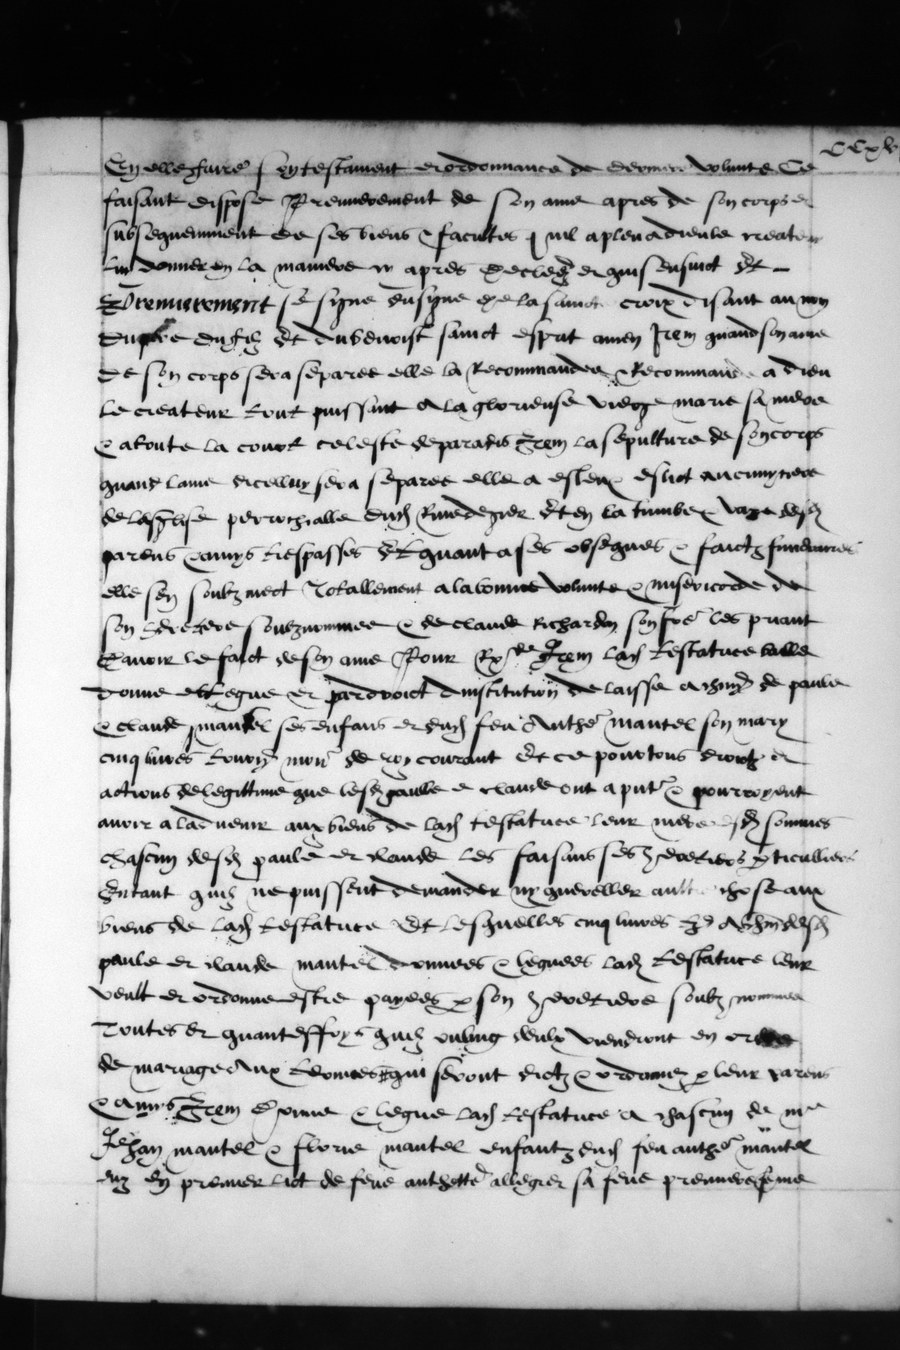 CCxl
En elle faire son testament et ordonnance de derniere volunte Ce
faisant dispose Premierement de son ame apres de son corps et
subsequemment de ses biens & facultes quil a pleu a dieu le createur
luy donner en la maniere cy apres et quil sensuict Et
Premierement se signe du signe de la saincte croix disant au nom
du pere du filz Et du benoist sainct esprit amen Item quand son ame
de son corps sera separee elle la recommandee & recommande a dieu
le createur tout puissant a la glorieuse vierge marie sa mere
& a toute la court celeste de paradis Item la sepulture de son corps
quand lame dicelluy sera separee elle a esleu & eslict au cimytiere
de leglise perrochialle dud et en la tumbe & vaze desd
parens & amys trespasses Et quant a ses obseques & faictz funeraires
elle sen soubzmect totallement a la bonne volunte & misericorde de
son heretiere soubznommee & de claude Richardon son fre les priant
davoir le faict de son ame Pour Item lad testatrice baille
donne et legue et par droict dinstitution delaisse a de paule
& claude mantel ses enfans et dud feu Anthe mantel son mary
cinq livres de roy courant Et ce pour tous droictz et
actions de legittime que lesd paule et claude ont & pourroyent
avoir a ladvenir aux biens de lad testatrice leur mere sommes
chascun desd paule et claude les faisans ses heretiers pticulliers
Entant quilz ne puissent demander ny quereller aultre chose aux
biens de lad testatrice Et lesquelles cinq livres desd
paule et claude mantel donnees & leguees lad testatrice leur
veult et ordonne estre payees p son heretiere soubz nommee
Toutes et quanteffoys quilz ou lung deulx viendront en ordre
de mariage aux termes qui seront dictz & ordonne p leur parens
& amys Item donne & legue lad testatrice a chascun de me
Jehan mantel & florie mantel enfantz dud feu anthe mantel
en premier lict de feue anthette allegier sa feue premiere feme